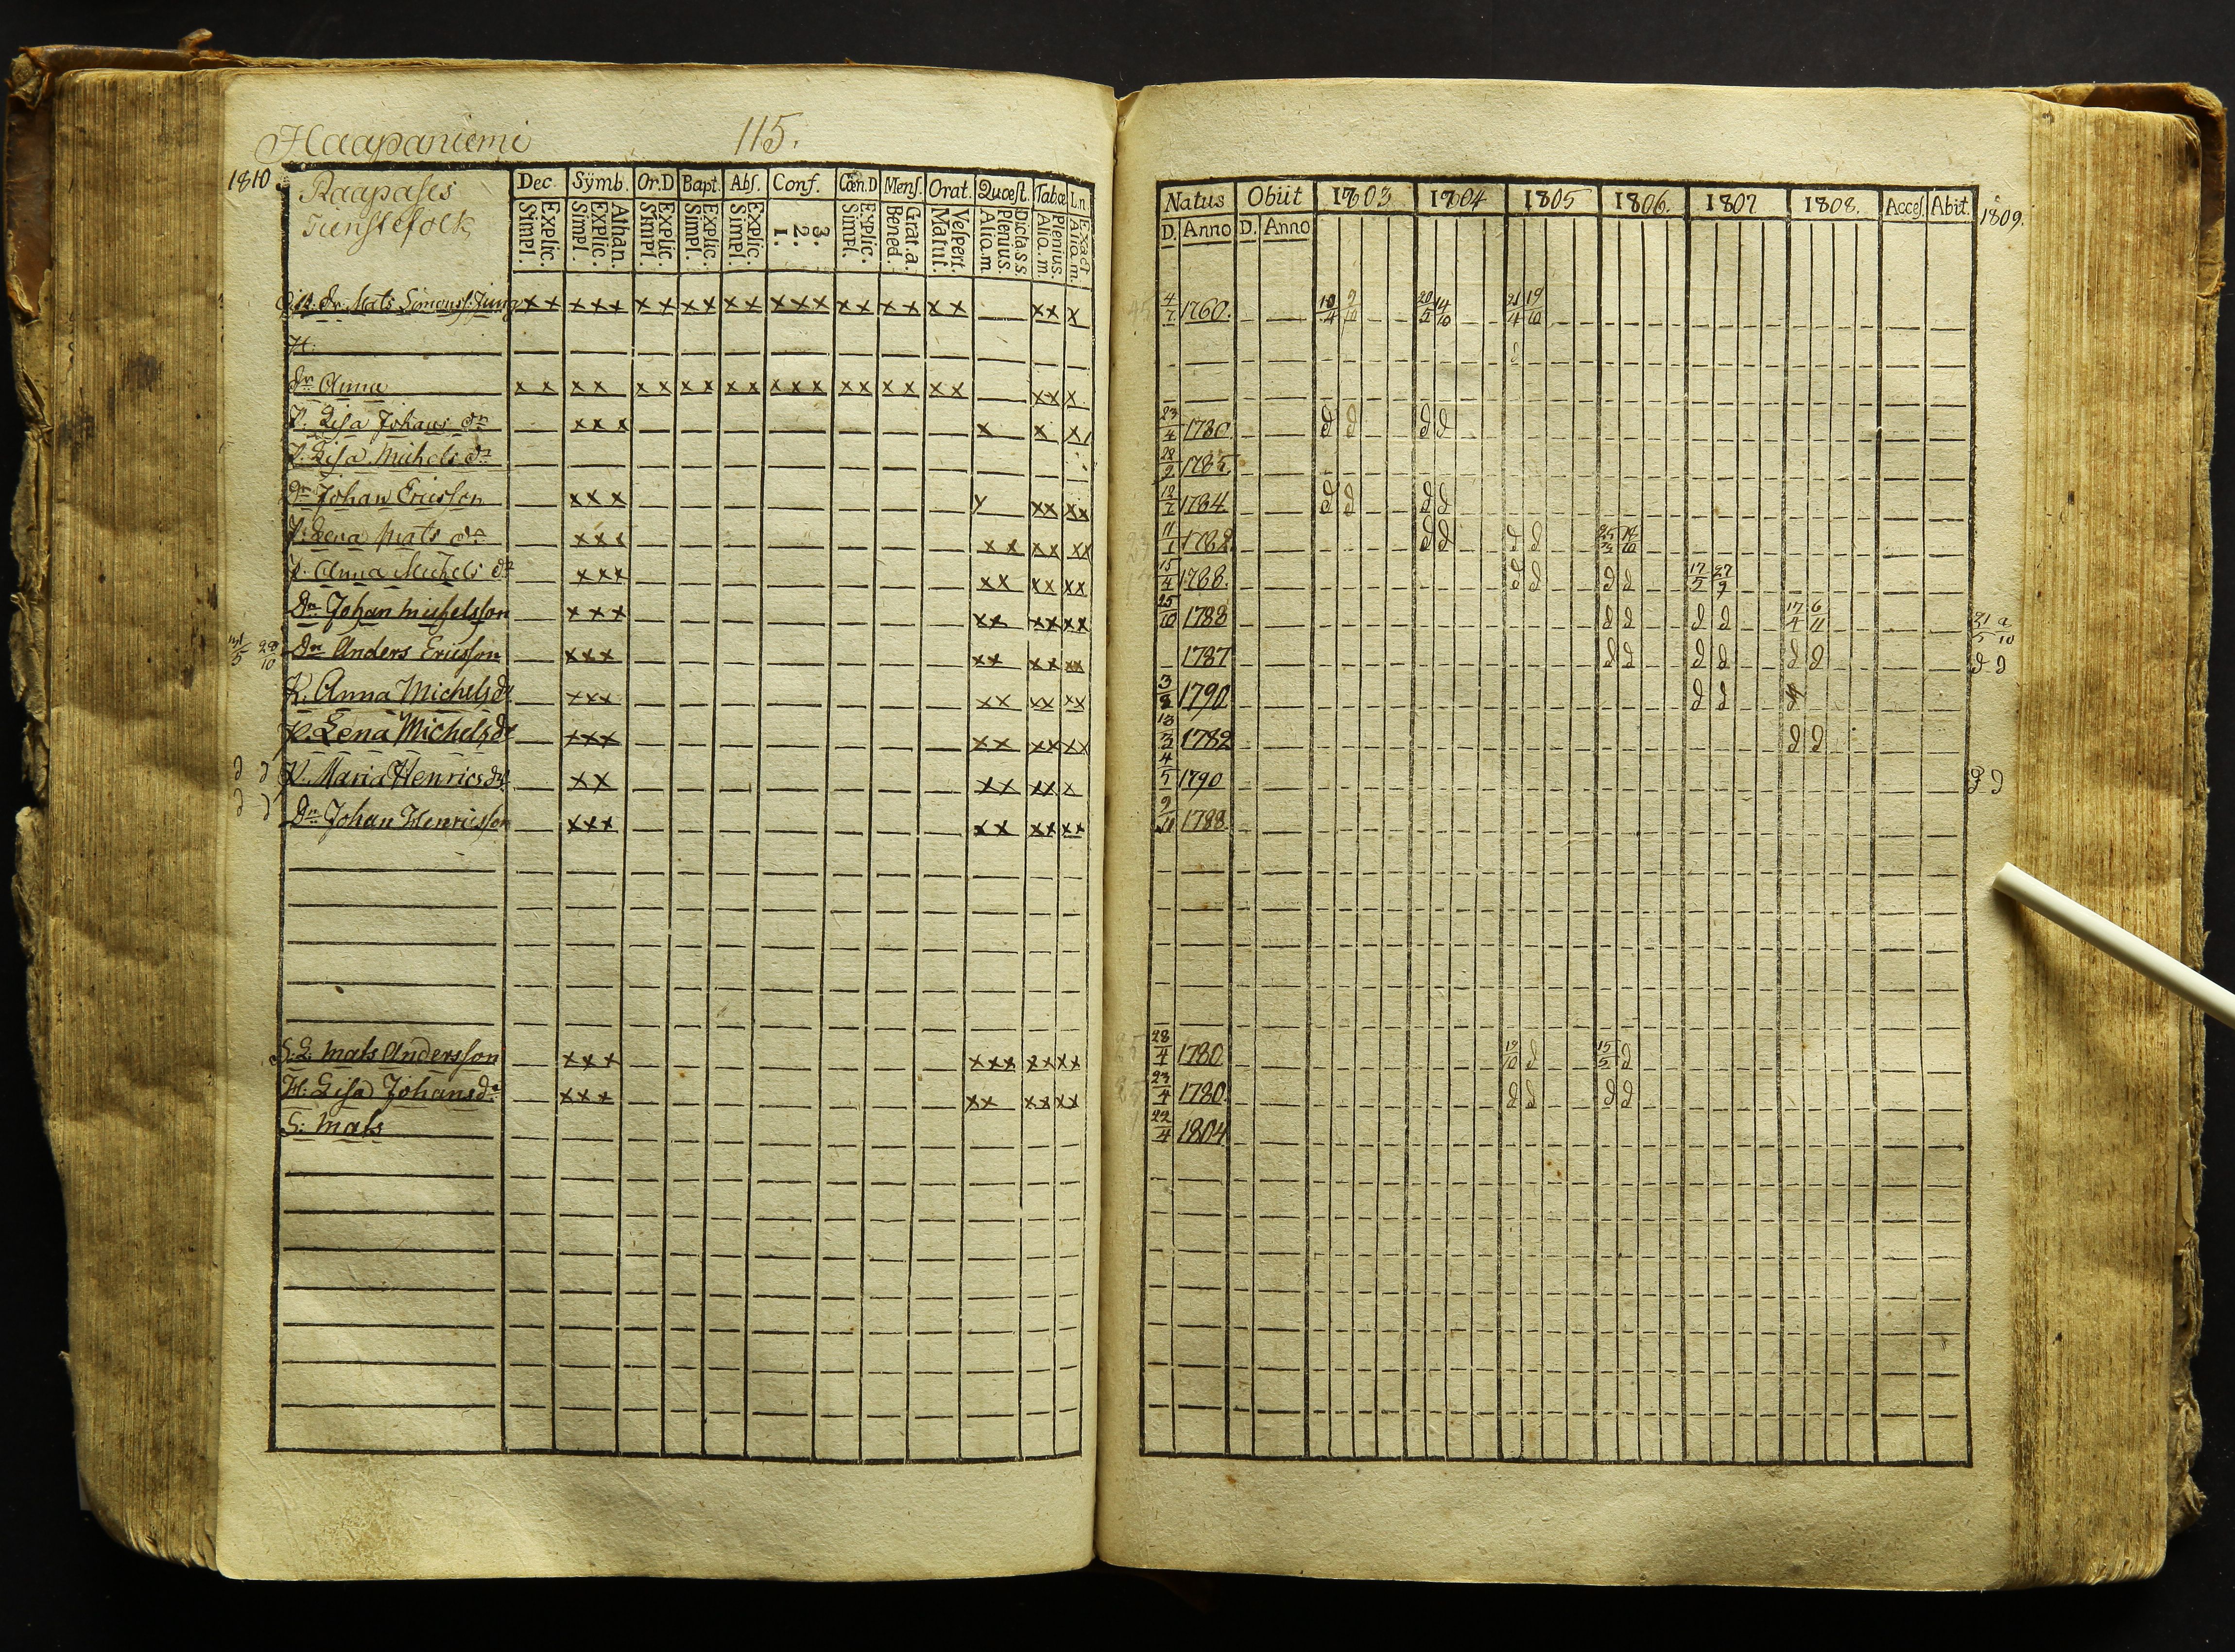 Haapaniemi 115.
1810 Raapases Dec. Symb. Or.D Bapt. Abſ. Conf. Cœn.D Menſ. Orat. Quœſt. Tabœ L.n.
Tienstefolk Simpl. Explic. Simpl. Explic. Athan. Simpl. Explic. Simpl. Explic. Simpl. Explic. 1. 2. 3. Simpl. Explic. Bened. Grat. a. Matut. Veſpert. Alia. m. Plenius. Dicta. s s Alia. m. Plenius. Alia. m. Exact
Natus Obiit 1803 1804 1805 1806. 1807 1808. Acceſ. Abit. 1809.
D. Anno D. Anno
Dr. Mats Simonss: Jung x x x x x x x x x x x x x x x x x x x x x x x x 4/7 1760. 10/4 9/10 20/5 14/10 21/4 19/10
H:
dr Anna x x x x x x x x x x x x x x x x x x x x x
P. Lisa Johans dr x x x x x x 23/4 1780. d d d d
P. Lisa Michels dr 28/2 1785.
Dr Johan Ericsson x x x x x x x 12/7 1784 d d d d
P: Lena Mats dr x x x x x x x x x 11/1 1782 d d d d 25/3 19/10
P. Anna Michels dr x x x x x x x x x 15/4 1788. d d d d 17/5 27/9
Dn Johan Michelsson x x x x x x x x x 25/10 1788 d d d d 17/4 6/11
Dn Anders Ericsson x x x x x x x x x 1787 d d d d d d d d
K. Anna Michelsdr x x x x x x x x x 3/8 1790 d d
P. Lena Michelsdr x x x x x x x x x 13/3 1782 d d
d d P. Maria Henricsdr x x x x x x x 4/5 1790 d d
d d Dn Johan Henricsson x x x x x x x x x 9/11 1788
S: L. Mats Andersson x x x x x x x x x x 28/4 1780 19/10 d 15/5 d
H: Lisa Johansdr x x x x x x x x x 23/4 1780 d d d d
S: Mats 22/4 1804